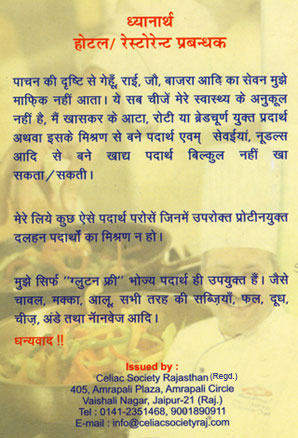 ध्यानार्थ
होटल/ रेस्टोरेन्ट प्रबन्धक
पाचन की दृष्टि से गेहूँ, राई, जौ, बाजरा आदि का सेवन मुझे
माफ़िक नहीं आता। ये सब चीजें मेरे स्वास्थ्य के अनुकूल
नहीं है, मैं खासकर के आटा, रोटी या ब्रेडचूर्ण युक्त प्रदार्थ
अथवा इसके मिश्रण से बने पदार्थ एवम् सेवईयां, नूडल्स
आदि से बने खाद्य पदार्थ बिल्कुल नहीं खा
सकता/सकती।
मेरे लिये कुछ ऐसे पदार्थ परोसें जिनमें उपरोक्त प्रोटीनयुक्त
दलहन पदार्थों का मिश्रण न हो।
मुझे सिर्फ "ग्लुटन फ्री" भोज्य पदार्थ ही उपयुक्त हैं। जैसे
चावल, मक्का, आलू, सभी तरह की सब्ज़ियाँ, फल, दूध,
चीज़, अंडे तथा नॅानवेज आदि।
धन्यवाद !!
Issued by :
Celiac Society Rajasthan (Regd.)
405, Amrapali Plaza, Amrapali Circle
Vaishali Nagar, Jaipur-21 (Raj.)
Tel : 0141-2351468, 9001890911
E-mail : info@celiacsocietyraj.com